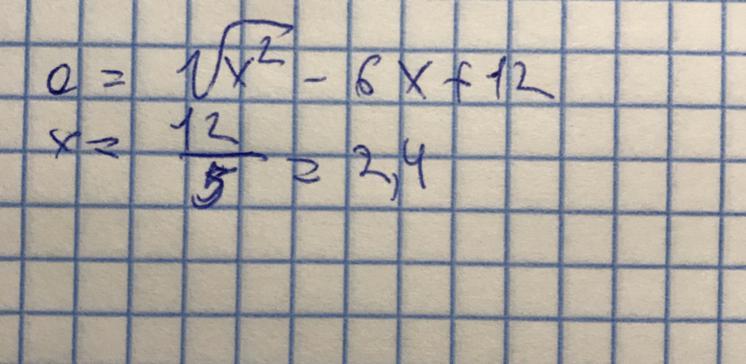 0 = √x² - 6x + 12
x = 12/5 = 2,4